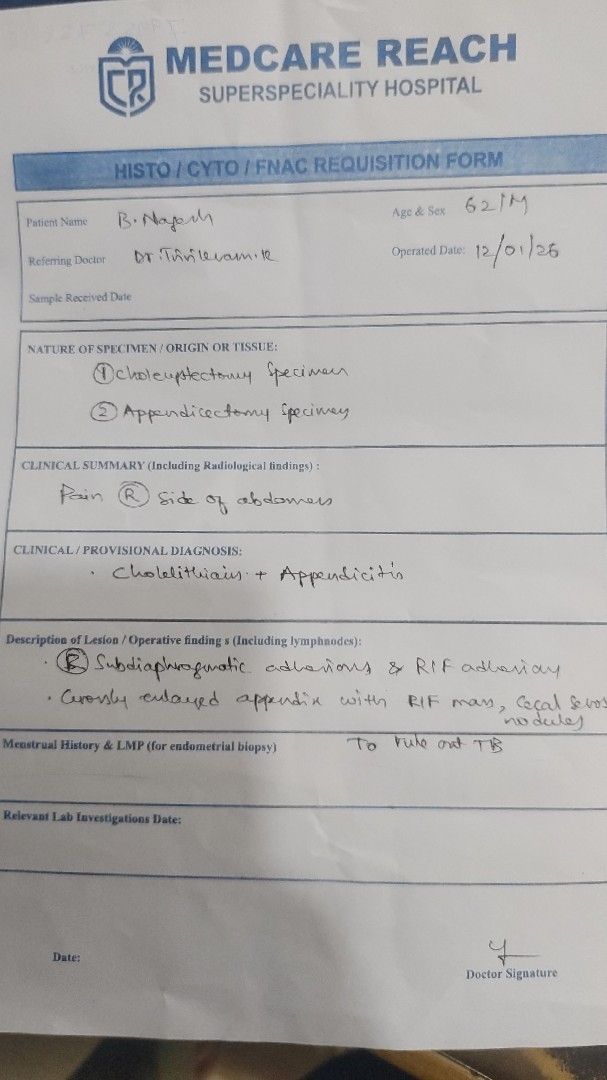 MEDCARE REACH
SUPERSPECIALITY HOSPITAL
HISTO / CYTO / FNAC REQUISITION FORM
Patient Name B. Nagesh
Age & Sex 62/M
Referring Doctor Dr.
Operated Date: 12/01/26
Sample Received Date
NATURE OF SPECIMEN / ORIGIN OR TISSUE:
① Specimen
② Appendicectomy Specimen
CLINICAL SUMMARY (Including Radiological findings) :
Pain Ⓡ Side of abdomen
CLINICAL / PROVISIONAL DIAGNOSIS:
• Cholelithiasis + Appendicitis
Description of Lesion / Operative finding s (Including lymphnodes):
• Ⓡ Subdiaphragmatic adhesions & RIF adhesions
• Grossly enlarged appendix with RIF mass, Cecal
nodules
Menstrual History & LMP (for endometrial biopsy)
To rule out TB
Relevant Lab Investigations Date:
Date:
Doctor Signature